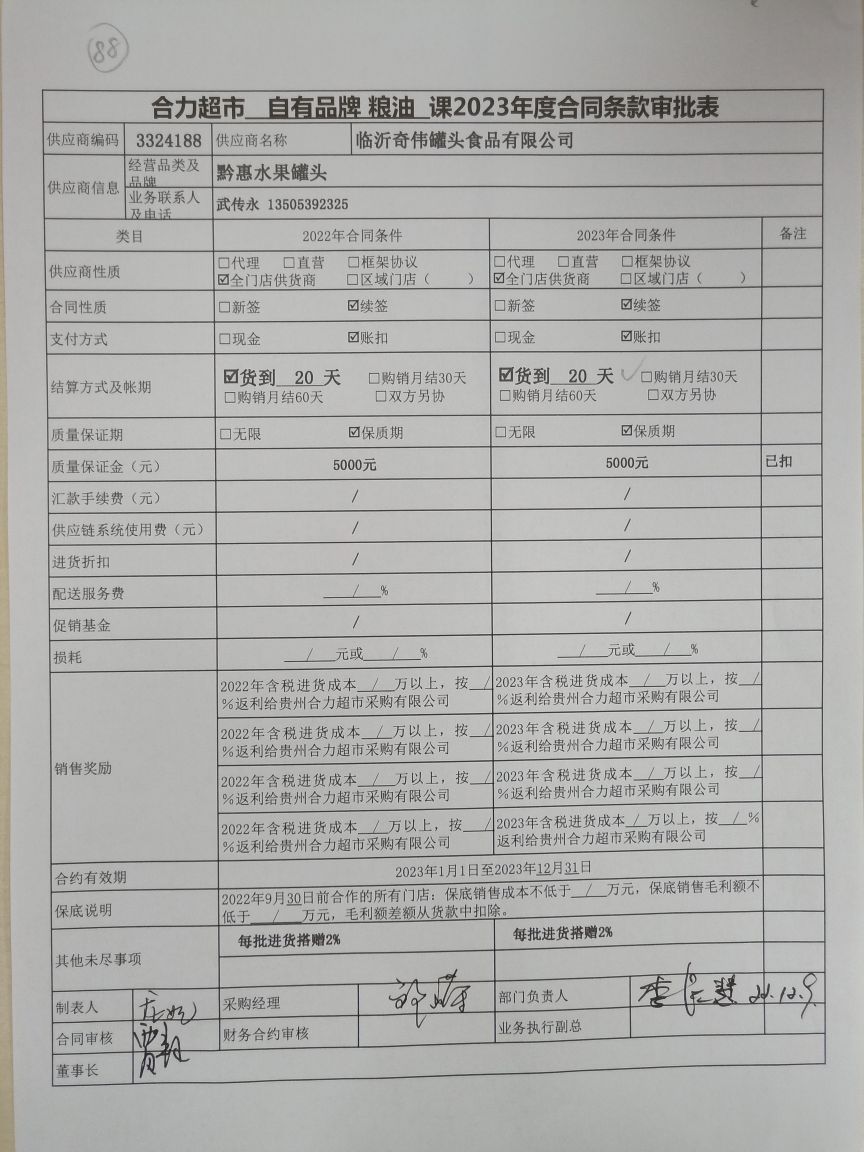 88
合力超市 自有品牌 粮油 课2023年度合同条款审批表
供应商编码 3324188 供应商名称 临沂奇伟罐头食品有限公司
供应商信息 经营品类及品牌 黔惠水果罐头
业务联系人及电话 武传永 13505392325
类目 2022年合同条件 2023年合同条件 备注
供应商性质 □代理 □直营 □框架协议 □代理 □直营 □框架协议
☑全门店供货商 □区域门店（ ） ☑全门店供货商 □区域门店（ ）
合同性质 □新签 ☑续签 □新签 ☑续签
支付方式 □现金 ☑账扣 □现金 ☑账扣
结算方式及帐期 ☑货到 20 天 □购销月结30天 ☑货到 20 天 ✓ □购销月结30天
□购销月结60天 □双方另协 □购销月结60天 □双方另协
质量保证期 □无限 ☑保质期 □无限 ☑保质期
质量保证金（元） 5000元 5000元 已扣
汇款手续费（元） / /
供应链系统使用费（元） / /
进货折扣 / /
配送服务费 / % / %
促销基金 / /
损耗 / 元或 / % / 元或 / %
销售奖励
2022年含税进货成本 / 万以上，按 / 2023年含税进货成本 / 万以上，按 /
%返利给贵州合力超市采购有限公司 %返利给贵州合力超市采购有限公司
2022年含税进货成本 / 万以上，按 / 2023年含税进货成本 / 万以上，按 /
%返利给贵州合力超市采购有限公司 %返利给贵州合力超市采购有限公司
2022年含税进货成本 / 万以上，按 / 2023年含税进货成本 / 万以上，按 /
%返利给贵州合力超市采购有限公司 %返利给贵州合力超市采购有限公司
2022年含税进货成本 / 万以上，按 / 2023年含税进货成本 / 万以上，按 / %
%返利给贵州合力超市采购有限公司 返利给贵州合力超市采购有限公司
合约有效期 2023年1月1日至2023年12月31日
保底说明 2022年9月30日前合作的所有门店：保底销售成本不低于 / 万元，保底销售毛利额不
低于 / 万元，毛利额差额从货款中扣除。
其他未尽事项 每批进货搭赠2% 每批进货搭赠2%
制表人 采购经理 部门负责人 22.12.9.
合同审核 财务合约审核 业务执行副总
董事长